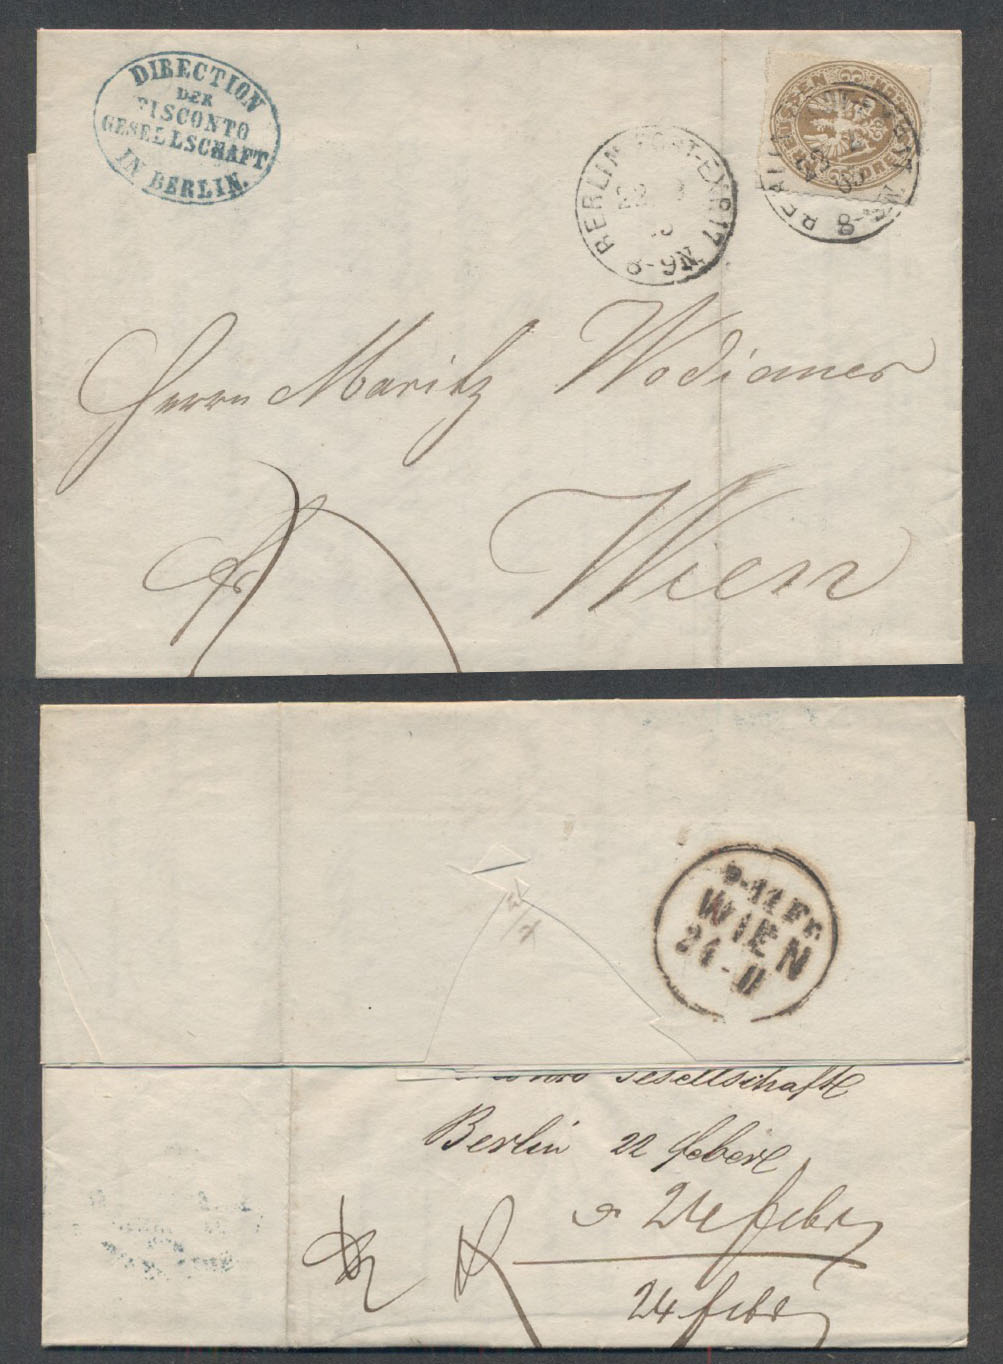 DIRECTION
DER
DISCONTO
GESELLSCHAFT
IN BERLIN.
PREUSSEN
BERLIN POST-EXP. 17
22
8-9 N.
Herrn Moritz Wodianer
Wien
9-11 Fr
WIEN
24 - II
Gesellschaft
Berlin 22 Feber
24 Febr
24 Febr